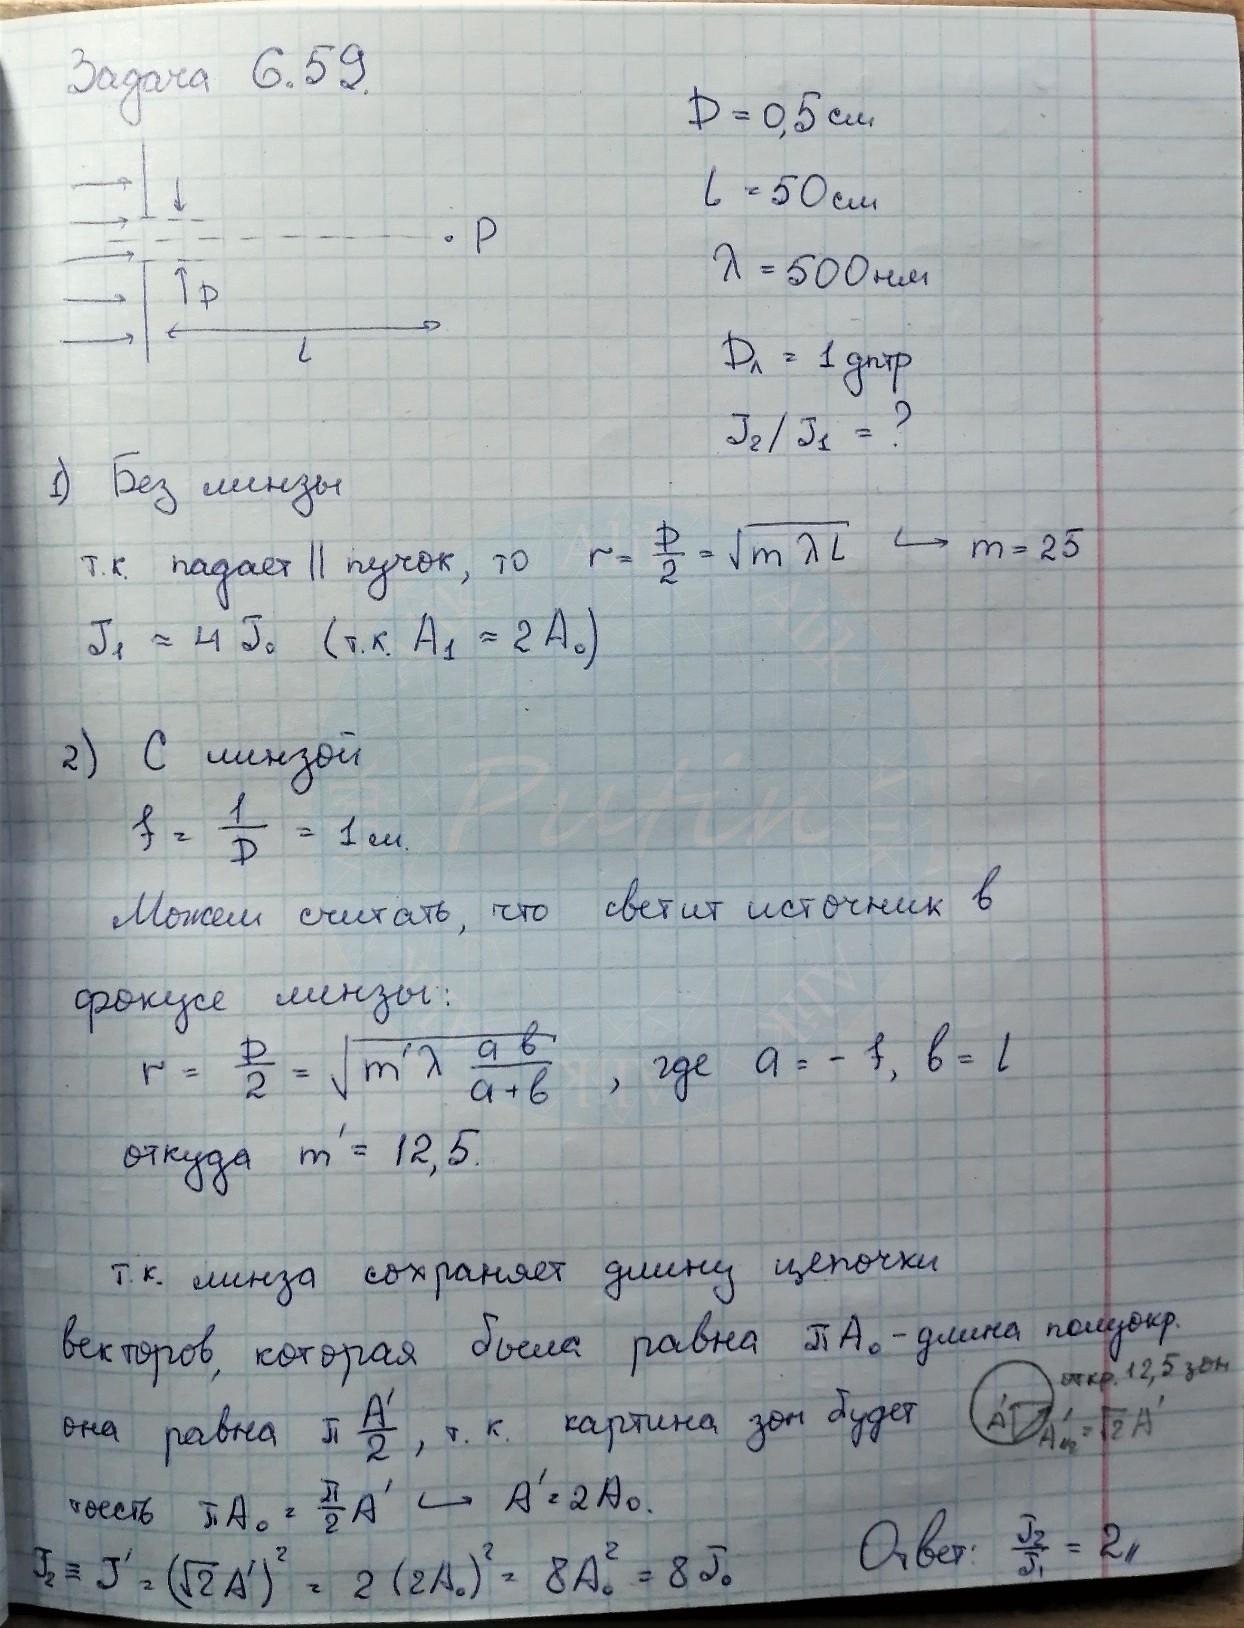 Задача 6.59.
D = 0,5 см
L = 50 см
λ = 500 нм
Dл = 1 дптр
J₂/J₁ = ?
P
D
L
1) Без линзы
т.к. падает || пучок, то r = D/2 = √(m λ L) ↪ m = 25
J₁ ≈ 4 J₀ (т.к. A₁ ≈ 2 A₀)
2) С линзой
f = 1/D = 1 м.
Можем считать, что светит источник в
фокусе линзы:
r = D/2 = √(m' λ ab/(a+b)), где a = - f, b = L
откуда m' = 12,5.
т.к. линза сохраняет длину цепочки
векторов, которая была равна πA₀ - длина полуокр.
она равна π A'/2, т.к. картина зон будет
откр. 12,5 зон
A' = √2 A'
тоесть πA₀ = π/2 A' ↪ A' = 2A₀.
J₂ ≡ J' = (√2 A')² = 2 (2A₀)² = 8A₀² = 8J₀
Ответ: J₂/J₁ = 2//
Putin